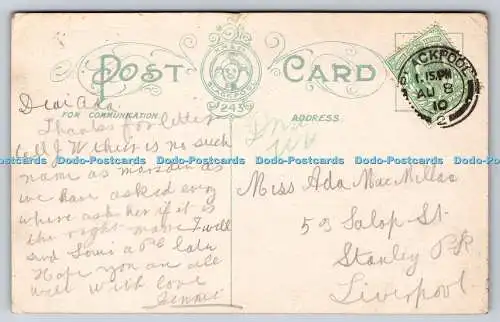 POST CARD
BLACKPOOL
243
BLACKPOOL
1.15 PM
AU 8
10
2
FOR COMMUNICATION
ADDRESS.
Dear Ada
Thanks for letter
tell J W there is no such
name as marsden as
we have asked every
where ask her if it is
the right name I will
send Louie a P.C later
Hope you are all
well with love
Jennie
Miss Ada MacMillan
53 Salop St.
Stanley Pk
Liverpool
Dodo-Postcards Dodo-Postcards Dodo-Postcards Dodo-Postcards Dodo-Postcards Dodo-Postcards